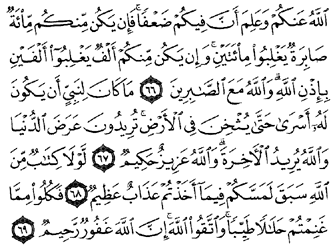 ٱللَّهُ عَنكُمْ وَعَلِمَ أَنَّ فِيكُمْ ضَعْفًا ۚ فَإِن يَكُن مِّنكُم مِّا۟ئَةٌ
صَابِرَةٌ يَغْلِبُوا۟ مِا۟ئَتَيْنِ ۚ وَإِن يَكُن مِّنكُمْ أَلْفٌ يَغْلِبُوٓا۟ أَلْفَيْنِ
بِإِذْنِ ٱللَّهِ ۗ وَٱللَّهُ مَعَ ٱلصَّـٰبِرِينَ ٦٦ مَا كَانَ لِنَبِىٍّ أَن يَكُونَ
لَهُۥٓ أَسْرَىٰ حَتَّىٰ يُثْخِنَ فِى ٱلْأَرْضِ ۚ تُرِيدُونَ عَرَضَ ٱلدُّنْيَا
وَٱللَّهُ يُرِيدُ ٱلْـَٔاخِرَةَ ۗ وَٱللَّهُ عَزِيزٌ حَكِيمٌ ٦٧ لَّوْلَا كِتَـٰبٌ مِّنَ
ٱللَّهِ سَبَقَ لَمَسَّكُمْ فِيمَآ أَخَذْتُمْ عَذَابٌ عَظِيمٌ ٦٨ فَكُلُوا۟ مِمَّا
غَنِمْتُمْ حَلَـٰلًا طَيِّبًا ۚ وَٱتَّقُوا۟ ٱللَّهَ ۚ إِنَّ ٱللَّهَ غَفُورٌ رَّحِيمٌ ٦٩